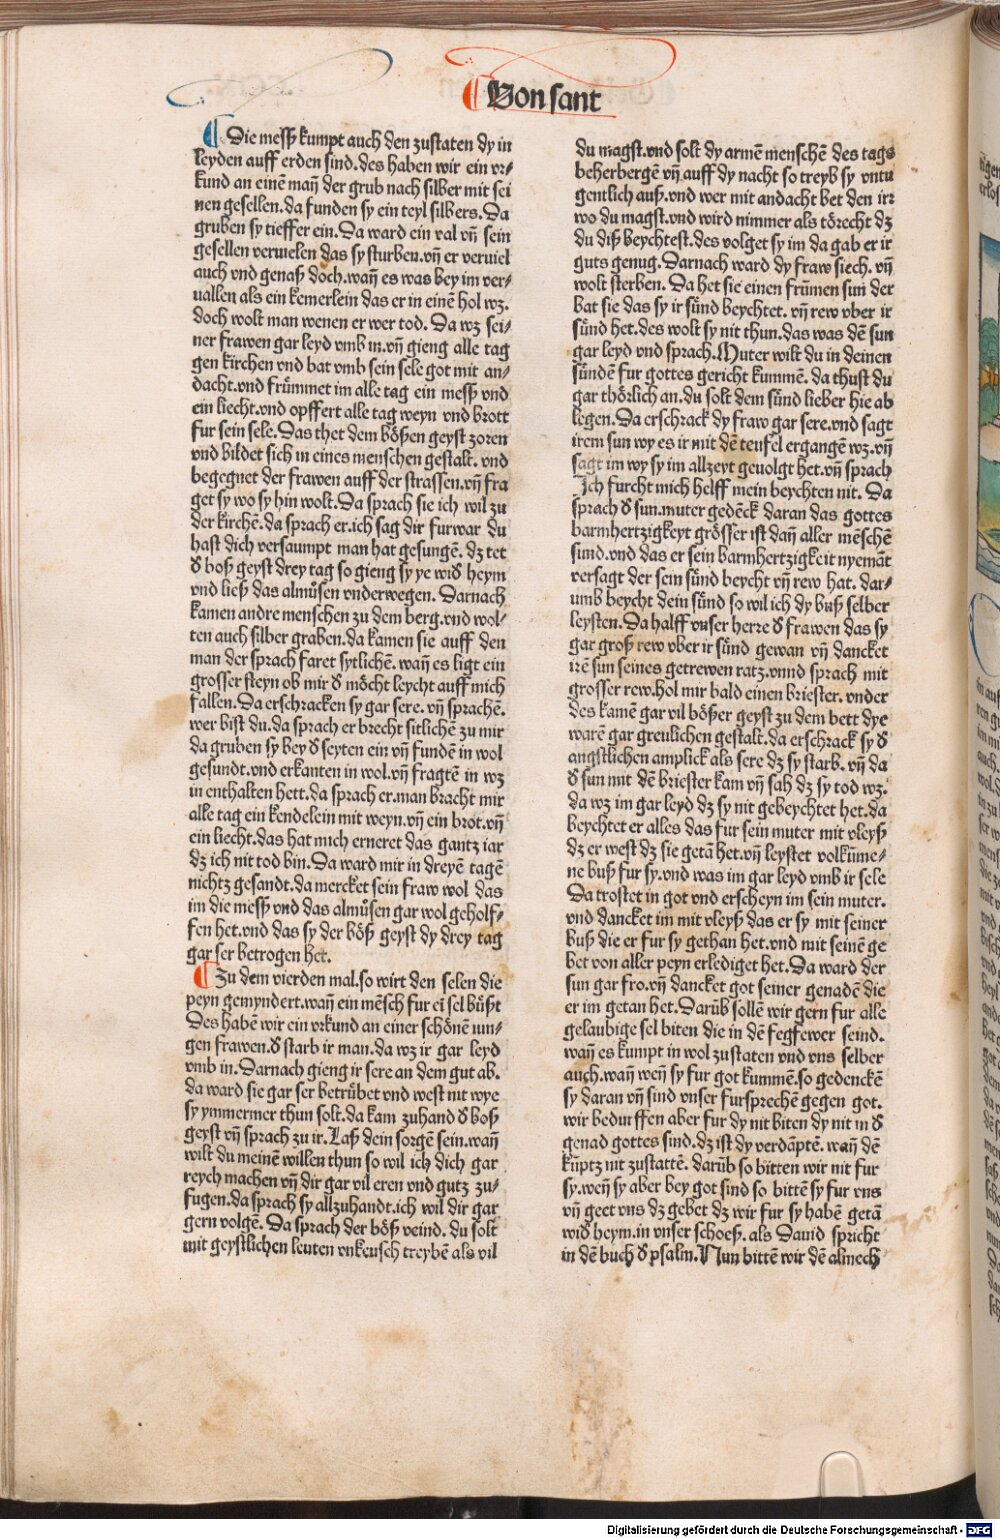 Von sant
Die messz kumpt auch den zustaten dy in
leyden auff erden sind. des haben wir ein vr⸗
kund an einē mañ der grub nach silber mit sei
nen gesellen. da funden sy ein teyl silbers. Da
gruben sy tieffer ein. Da ward ein val vñ sein
gesellen vervielen das sy sturben. vñ er verviel
auch vnd genaß doch. wañ es was bey im ver⸗
uallen als ein kemerlein das er in einē hol wz.
doch wolt man wenen er wer tod. Da wz sei⸗
ner frawen gar leyd vmb in. vñ gieng alle tag
gen kirchen vnd bat vmb sein sele got mit an⸗
dacht. vnd frümmet im alle tag ein messz vnd
ein liecht. vnd opffert alle tag weyn vnd brott
fur sein sele. Das thet dem bößen geyst zoren
vnd bildet sich in eines menschen gestalt. vnd
begegnet der frawen auff der strassen. vñ fra
get sy wo sy hin wolt. Da sprach sie ich wil zu
der kirchē. da sprach er. ich sag dir furwar du
hast dich versaumpt man hat gesungē. dz tet
d boß geyst drey tag so gieng sy ye wid heym
vnd ließ das almůsen vnderwegen. Darnach
kamen andre menschen zu dem berg. vnd wol⸗
ten auch silber graben. da kamen sie auff den
man der sprach faret sytlichē. wañ es ligt ein
grosser steyn ob mir d möcht leycht auff mich
fallen. Da erschracken sy gar sere. vñ sprachē.
wer bist du. da sprach er brecht sitlichē zu mir
da gruben sy bey d seyten ein vñ fundē in wol
gesundt. vnd erkanten in wol. vñ fragtē in wz
in enthalten hett. da sprach er. man bracht mir
alle tag ein kendelein mit weyn. vñ ein brot. vñ
ein liecht. das hat mich erneret das gantz iar
dz ich nit tod bin. Da ward mir in dreyē tagē
nichtz gesandt. da mercket sein fraw wol das
im die messz vnd das almůsen gar wol geholf⸗
fen het. vnd das sy der böß geyst dy drey tag
gar ser betrogen het.
Zu dem vierden mal. so wirt den selen die
peyn gemyndert. wañ ein mēsch fur ei sel büßt
Des habē wir ein vrkund an einer schönē iun⸗
gen frawen. d starb ir man. da wz ir gar leyd
vmb in. Darnach gieng ir sere an dem gut ab.
da ward sie gar ser betrübet vnd west nit wye
sy ymmermer thun solt. da kam zuhand d boß
geyst vñ sprach zu ir. Laß dein sorgē sein. wañ
wilt du meinē willen thun so wil ich dich gar
reych machen vñ dir gar vil eren vnd gutz zu⸗
fugen. da sprach sy allzuhandt. ich wil dir gar
gern volgē. Da sprach der böß veind. du solt
mit geystlichen leuten vnkeusch treybē als vil
du magst. vnd solt dy armē menschē des tags
beherbergē vñ auff dy nacht so treyb sy vntu
gentlich auß. vnd wer mit andacht bet den irr
wo du magst. vnd wird nimmer als törecht dz
du diß beychtest. des volget sy im da gab er ir
guts genug. Darnach ward dy fraw siech. vñ
wolt sterben. Da het sie einen frümen sun der
bat sie das sy ir sünd beychtet. vñ rew vber ir
sünd het. des wolt sy nit thun. das was dē sun
gar leyd vnd sprach. Muter wilt du in deinen
sündē fur gottes gericht kummē. da thust du
gar thörlich an. du solt dem sünd lieber hie ab
legen. Da erschrack dy fraw gar sere. vnd sagt
irem sun wy es ir mit dē teufel ergangē wz. vñ
sagt im wy sy im allzeyt geuolgt het. vñ sprach
Ich furcht mich helff mein beychten nit. Da
sprach d sun. muter gedēck daran das gottes
barmhertzigkeyt grösser ist dañ aller mēschē
sund. vnd das er sein barmhertzigkeit nyemāt
versagt der sein sünd beycht vñ rew hat. dar⸗
umb beycht dein sünd so wil ich dy buß selber
leysten. Da halff vnser herre d frawen das sy
gar groß rew vber ir sünd gewan vñ dancket
irē sun seines getrewen ratz. vnnd sprach mit
grosser rew. hol mir bald einen briester. vnder
des kamē gar vil bößer geyst zu dem bett dye
warē gar greulichen gestalt. da erschrack sy d
angstlichen amplick als sere dz sy starb. vñ da
d sun mit dē briester kam vñ sah dz sy tod wz.
da wz im gar leyd dz sy nit gebeychtet het. da
beychtet er alles das fur sein muter mit vleyß
dz er west dz sie getā het. vñ leystet volküme⸗
ne buß fur sy. vnd was im gar leyd vmb ir sele
Da trostet in got vnd erscheyn im sein muter.
vnd dancket im mit vleyß das er sy mit seiner
buß die er fur sy gethan het. vnd mit seinē ge
bet von aller peyn erlediget het. Da ward der
sun gar fro. vñ dancket got seiner genadē die
er im getan het. Darüb sollē wir gern fur alle
gelaubige sel biten die in dē fegfewer seind.
wañ es kumpt in wol zustaten vnd vns selber
auch. wañ weñ sy fur got kummē. so gedenckē
sy daran vñ sind vnser fursprechē gegen got.
wir bedurffen aber fur dy nit biten dy nit in d
genad gottes sind. dz ist dy verdāptē. wañ dē
kūptz nit zustattē. darüb so bitten wir nit fur
sy. weñ sy aber bey got sind so bittē sy fur vns
vñ geet vns dz gebet dz wir fur sy habē getā
wid heym. in vnser schoeß. als Dauid spricht
in dē buch d psalm. Nun bittē wir dē almech
Digitalisierung gefördert durch die Deutsche Forschungsgemeinschaft - DFG